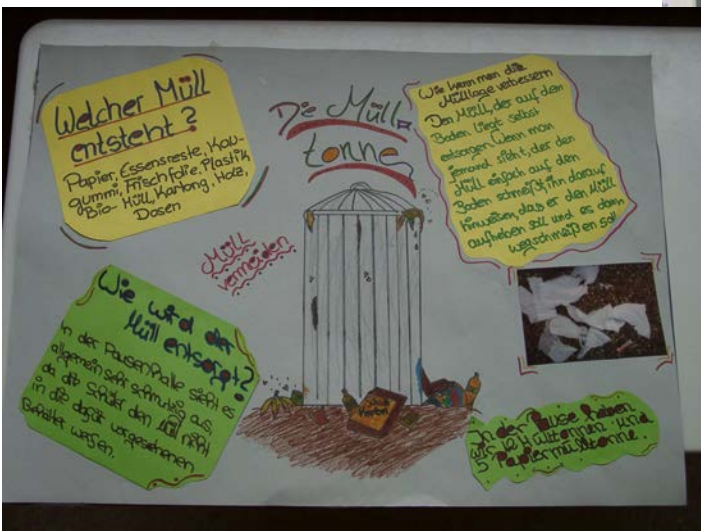 Welcher Müll
entsteht?
Papier, Essensreste, Kau-
gummi, Frischfolie, Plastik,
Bio-Müll, Kartong, Holz,
Dosen
Die Müll-
tonne
Müll
vermeiden
Wie kann man die
Mülllage verbessern
Den Müll, der auf dem
Boden liegt selbst
entsorgen. Wenn man
jemand sieht, der den
Müll einfach auf den
Boden schmeißt, ihn darauf
hinweisen, das er den Müll
aufheben soll und es dann
wegschmeißen soll
Wie wird der
Müll entsorgt?
In der Pausenhalle sieht es
allgemein sehr schmutzig aus,
da die Schüler den Müll nicht
in die dafür vorgesehenen
Behälter werfen.
In der Pause haben
wir 12 Mülltonnen und
5 Papiermülltonne.